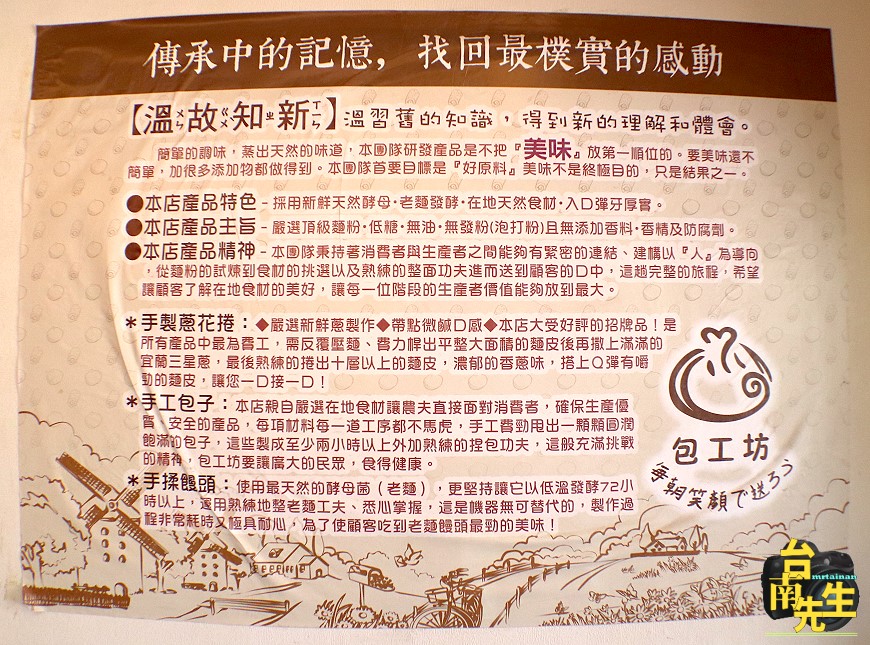 傳承中的記憶，找回最樸實的感動
【溫ㄨㄣ故ㄍㄨ知ㄓ新ㄒㄧㄣ】溫習舊的知識，得到新的理解和體會。
簡單的調味，蒸出天然的味道，本團隊研發產品是不把『美味』放第一順位的。要美味還不
簡單，加很多添加物都做得到。本團隊首要目標是『好原料』美味不是終極目的，只是結果之一。
●本店產品特色－採用新鮮天然酵母‧老麵發酵‧在地天然食材‧入口彈牙厚實。
●本店產品主旨－嚴選頂級麵粉‧低糖‧無油‧無發粉(泡打粉)且無添加香料‧香精及防腐劑。
●本店產品精神－本團隊秉持著消費者與生產者之間能夠有緊密的連結、建構以『人』為導向
，從麵粉的試煉到食材的挑選以及熟練的整面功夫進而送到顧客的口中，這趟完整的旅程，希望
讓顧客了解在地食材的美好，讓每一位階段的生產者價值能夠放到最大。
＊手製蔥花捲：◆嚴選新鮮蔥製作◆帶點微鹹口感◆本店大受好評的招牌品！是
所有產品中最為費工，需反覆壓麵、費力桿出平整大面積的麵皮後再撒上滿滿的
宜蘭三星蔥，最後熟練的捲出十層以上的麵皮，濃郁的香蔥味，搭上Q彈有嚼
勁的麵皮，讓您一口接一口！
＊手工包子：本店親自嚴選在地食材讓農夫直接面對消費者，確保生產優
質、安全的產品，每項材料每一道工序都不馬虎，手工費勁甩出一顆顆圓潤
飽滿的包子，這些製成至少兩小時以上外加熟練的捏包功夫，這般充滿挑戰
的精神，包工坊要讓廣大的民眾，食得健康。
＊手揉饅頭：使用最天然的酵母菌（老麵），更堅持讓它以低溫發酵72小
時以上，運用熟練地整老麵工夫、悉心掌握，這是機器無可替代的，製作過
程非常耗時又極具耐心，為了使顧客吃到老麵饅頭最勁的美味！
包工坊
每朝笑顏で送ろう
台南先生
mrtainan